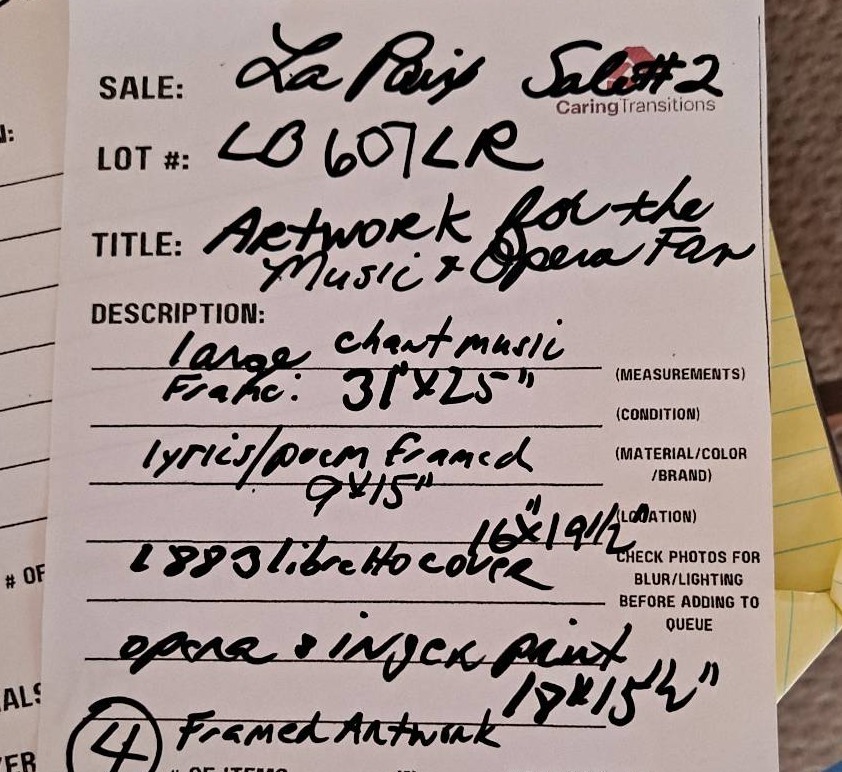 SALE: La Paix Sale #2
CaringTransitions
LOT #: LB607LR
TITLE: Artwork for the
Music & Opera Fan
DESCRIPTION:
large chant music
(MEASUREMENTS)
Frame: 31"x25"
(CONDITION)
lyrics/poem framed
(MATERIAL/COLOR
/BRAND)
9x15"
16"x19 1/2"
(LOCATION)
1883 libretto cover
CHECK PHOTOS FOR
BLUR/LIGHTING
BEFORE ADDING TO
QUEUE
opera singer print
18"x15 1/2"
4 Framed Artwork
# OF ITEMS
# OF